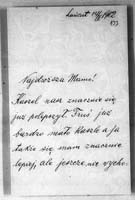 Łańcut 14/II 1902
Najdroższa Mamo!
Kaszel nasz znacznie się
już polepszył. Fruś już
bardzo mało kaszle a ja
także się mam znacznie
lepiej, ale jeszcze nie wycho-